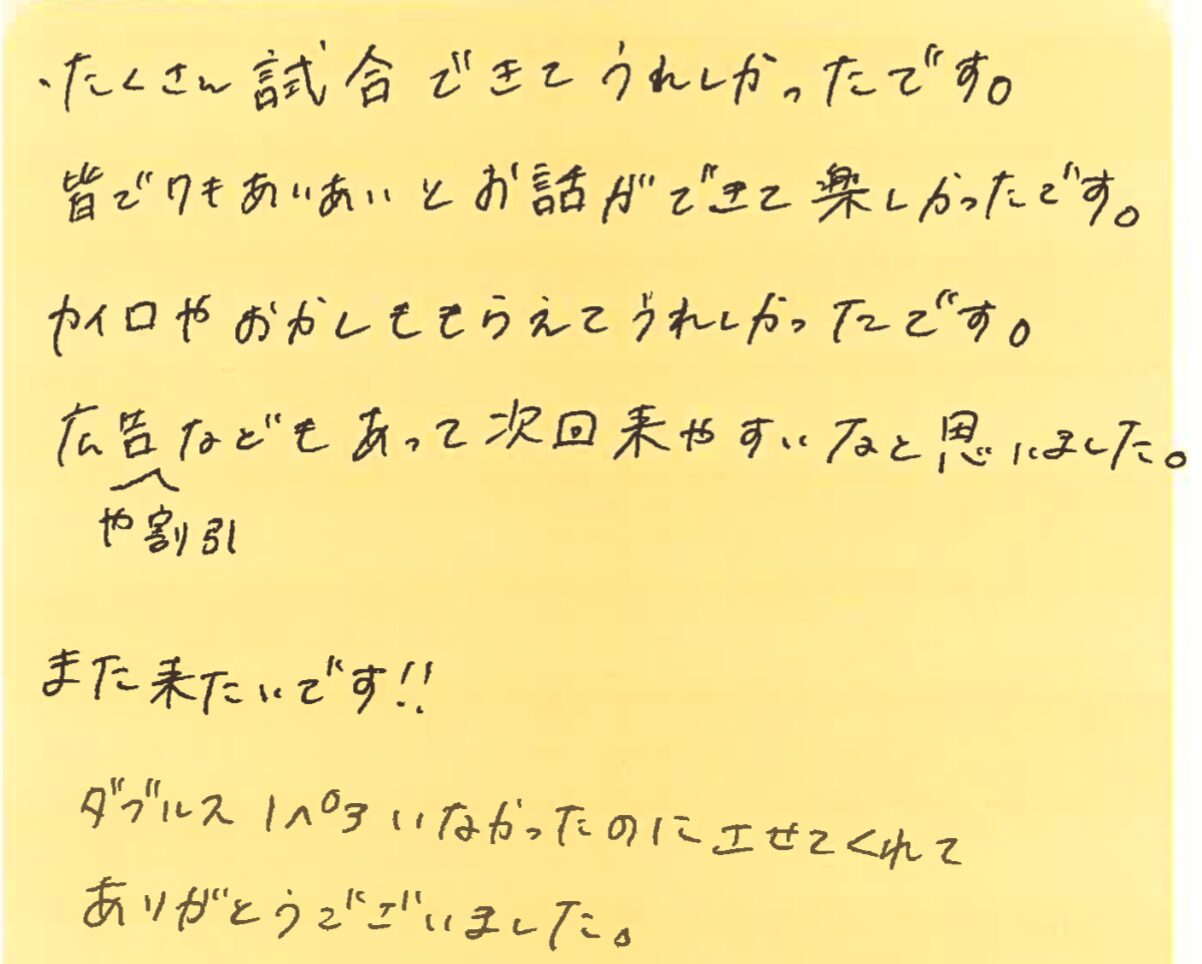 ・たくさん試合できてうれしかったです。
皆でワきあいあいとお話ができて楽しかったです。
カイロやおかしももらえてうれしかったです。
広告などもあって次回来やすいなと思いました。
や割引
また来たいです!!
ダブルス1ペアいなかったのにさせてくれて
ありがとうございました。